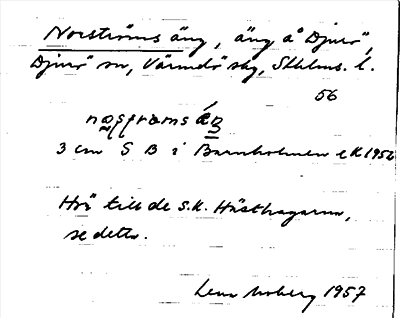 Norströms äng, äng å Djurö,
Djurö sn, Värmdö skg, Sthlms. l.
56
3 cm S B i Barnholmen e K 1952
Hör till de s.k. Hästhagarna,
se detta.
Lena Moberg 1957